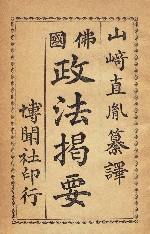 山﨑直胤纂譯
佛國
政法掲要
博聞社印行